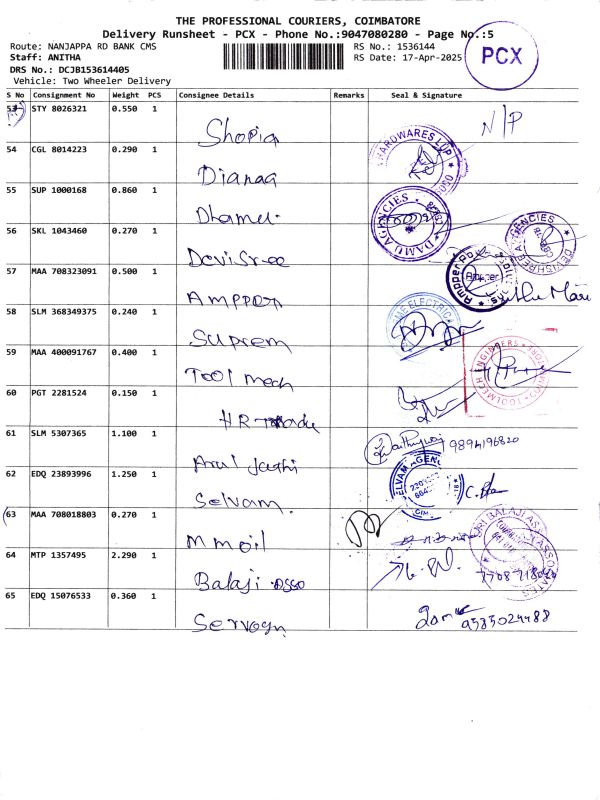 THE PROFESSIONAL COURIERS, COIMBATORE
Delivery Runsheet - PCX - Phone No.:9047080280 - Page No.:5
Route: NANJAPPA RD BANK CMS RS No.: 1536144
Staff: ANITHA RS Date: 17-Apr-2025
PCX
DRS No.: DCJB153614405
Vehicle: Two Wheeler Delivery
S No Consignment No Weight PCS Consignee Details Remarks Seal & Signature
53 STY 8026321 0.550 1 Shopia N/P
54 CGL 8014223 0.290 1 Dianaa HARDWARES LLP
55 SUP 1000168 0.860 1 Dhamu. DAMU AGENCIES
56 SKL 1043460 0.270 1 DeviSree DEVISHREE AGENCIES
57 MAA 708323091 0.500 1 AMPPER Ampper
58 SLM 368349375 0.240 1 Suprem ELECTRIC
59 MAA 400091767 0.400 1 Tool mech TOOLMECH ENGINEERS
60 PGT 2281524 0.150 1 HR
61 SLM 5307365 1.100 1 Arul 9894196820
62 EDQ 23893996 1.250 1 Selvam. ELVAM AGENC
63 MAA 708018803 0.270 1 M moil
64 MTP 1357495 2.290 1 Balaji SRI BALAJI ASSOCIATES
65 EDQ 15076533 0.360 1 9585024488